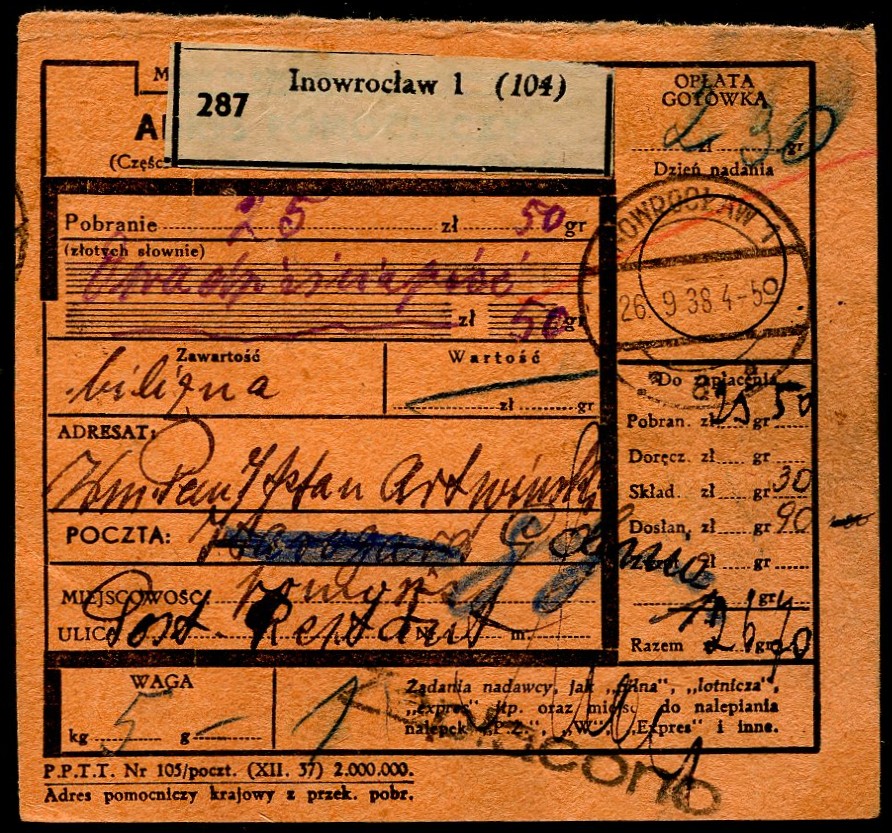 Inowrocław 1 (104)
287
M
A
(Częśc
OPŁATA
GOTÓWKĄ
2 zł 30 gr
Dzień nadania
INOWROCŁAW 1
26. 9 38 4-50
a
Pobranie 25 zł 50 gr
(złotych słownie)
Dwadzieściapięć
zł 50 gr
Zawartość
bilizna
Wartość
zł gr
Do zapłacenia
Pobran. zł 25 gr 50
Doręcz. zł gr
Skład. zł gr 30
Dosłan. zł gr 90
zł gr
gr
Razem zł 26 gr 70
ADRESAT:
Stefan
POCZTA: Gdynia
MIEJSCOWOŚĆ
ULICA Post. Restant Nr m.
WAGA
kg 5 g —
1
Żądania nadawcy, jak „pilna”, „lotnicza”,
„expres” itp. oraz miejsc do nalepiania
nalepek „P.Ż.”, „W”. „Expres” i inne.
P.P.T.T. Nr 105/poczt. (XII. 37) 2.000.000.
Adres pomocniczy krajowy z przek. pobr.